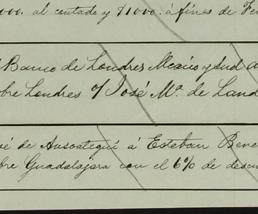 000. al contado y 11000. á fines de Fe
Banco de Londres Mexico y Sud A
bre Londres o/ José Mª. de Land
é de Ausoategui á Esteban Bene
bre Guadalajara con el 6% de descu